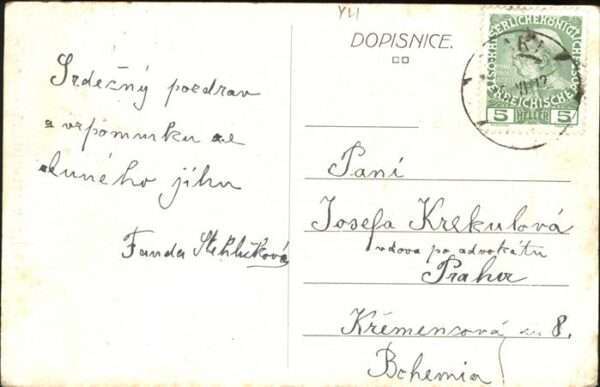 YLI
DOPISNICE.
KAISERLICHE KÖNIGLICHE
ÖSTERREICHISCHE
5 HELLER 5
Srdečný pozdrav
a vzpomínku ze
slunného jihu
Fanda
Paní
Josefa Krekulová
vdova po advokátu
Praha
Křemencová 8.
Bohemia